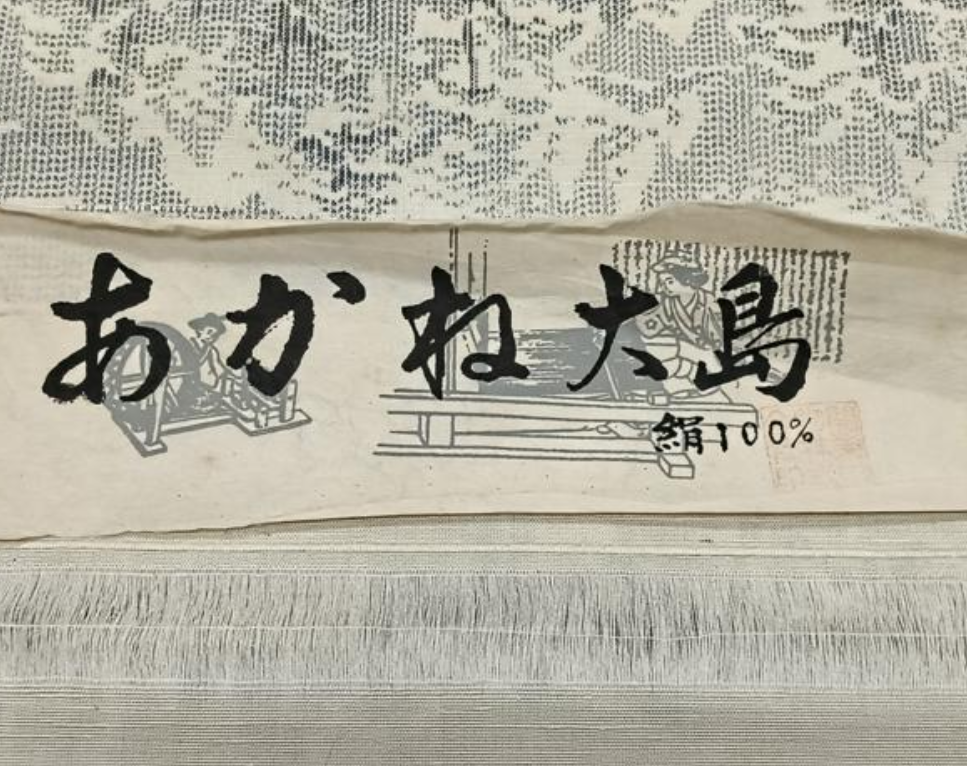 あかね大島
絹100%